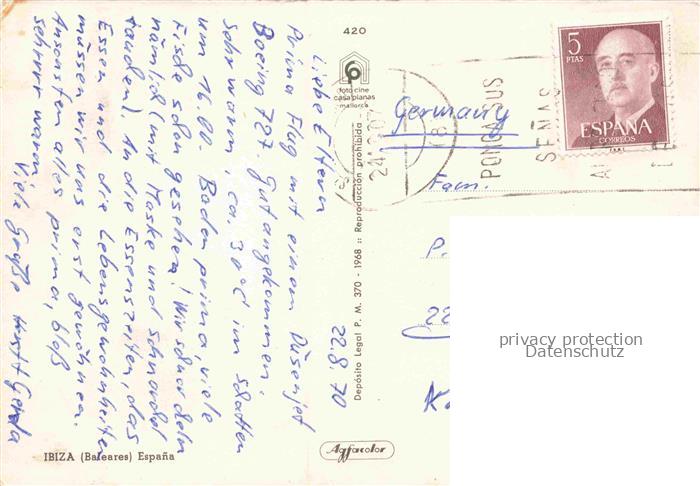 420
foto cine
casa planas
mallorca
5
PTAS
ESPAÑA
CORREOS
PONGA SUS
SEÑAS
24
Germany
Fam.
P.
22
K
22.8.70
Liebe Eltern
Prima Flug mit einem Düsenjet
Boeing 727. Gut angekommen.
Sehr warm, ca. 30°C im Schatten
um 16.00. Baden prima, viele
Fische schon gesehen! Wir schnorcheln
nämlich (mit Maske und Schnorchel
tauchen). An die Essenszeiten, das
Essen und die Lebensgewohnheiten
müssen wir uns erst gewöhnen.
Ansonsten alles prima, bloß
sehrrrr warm.
Viele Grüße Horst + Gerda
Depósito Legal P. M. 370 - 1968 :: Reproducción prohibida
Agfacolor
IBIZA (Baleares) España
privacy protection
Datenschutz